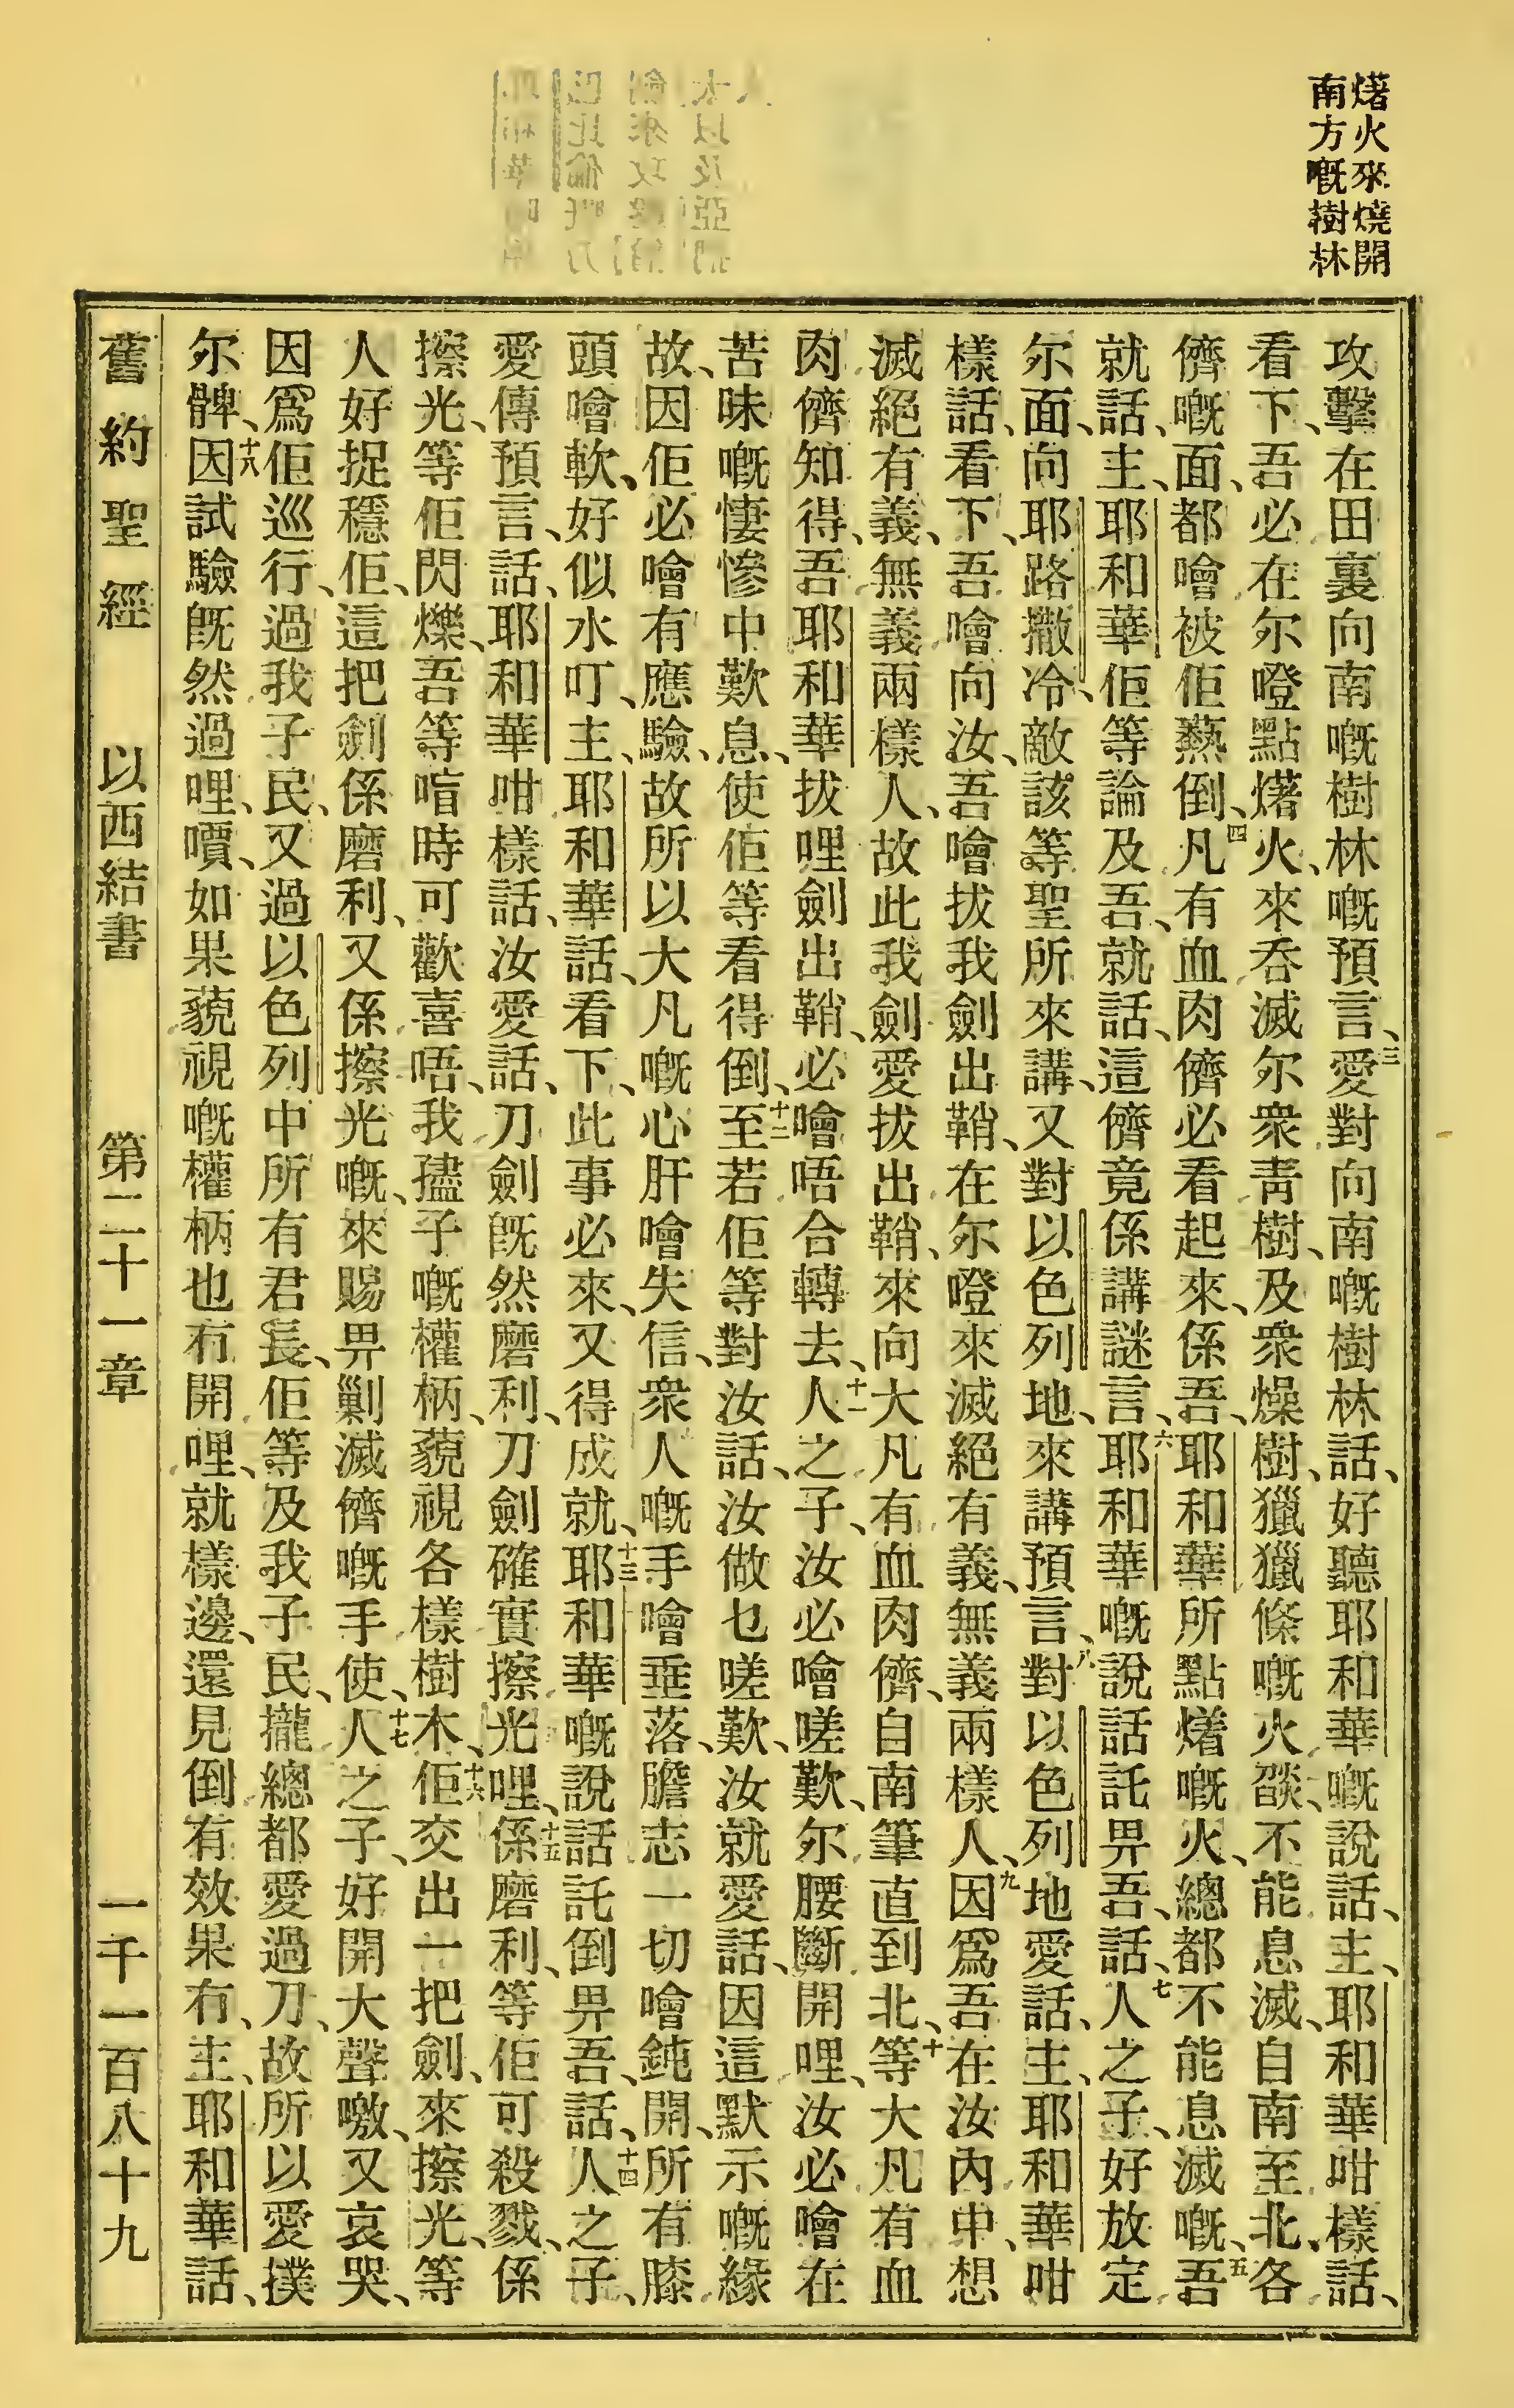 㷮火來燒開
南方嘅樹林
攻擊在田裏向南嘅樹林嘅預言、三愛對向南嘅樹林話、好聽耶和華嘅說話、主、耶和華咁樣話、
看下、吾必在尔嶝點㷮火、來吞滅尔衆靑樹、及衆燥樹、獵獵條嘅火燄、不能息滅、自南至北、各
儕嘅面、都噲被佢爇倒、四凡有血肉儕必看起來、係吾、耶和華所點㷮嘅火、總都不能息滅嘅、五吾
就話、主、耶和華佢等論及吾、就話、這儕竟係講謎言、六耶和華嘅說話託畀吾、話、七人之子、好放定
尔面、向耶路撒冷、敵該等聖所來講、又對以色列地、來講預言、八對以色列地愛話、主、耶和華咁
樣話、看下、吾噲向汝、吾噲拔我劍出鞘、在尔嶝來滅絕有義、無義兩樣人、九因爲吾在汝內中想
滅絕有義、無義兩樣人、故此我劍愛拔出鞘、來向大凡有血肉儕、自南筆直到北、十等大凡有血
肉儕知得、吾耶和華拔哩劍出鞘、必噲唔合轉去、十一人之子、汝必噲嗟歎、尔腰斷開哩、汝必噲在
苦昧嘅悽慘中歎息、使佢等看得倒、十二至若佢等對汝話、汝做乜嗟歎、汝就愛話、因這默示嘅緣
故、因佢必噲有應驗、故所以大凡嘅心肝噲失信、衆人嘅手噲垂落、膽志一切噲鈍開、所有膝
頭噲軟、好似水叮、主、耶和華話、看下、此事必來、又得成就、十三耶和華嘅說話託倒畀吾、話、十四人之子、
愛傳預言、話、耶和華咁樣話、汝愛話、刀劍旣然磨利、刀劍確實擦光哩、十五係磨利、等佢可殺戮、係
擦光、等佢閃爍、吾等嗰時可歡喜唔、我㜽子嘅權柄、藐視各樣樹木、十六佢交出一把劍、來擦光、等
人好捉穩佢、這把劍係磨利、又係擦光嘅、來賜畀剿滅儕嘅手使、十七人之子、好開大聲噭、又哀哭、
因爲佢巡行、過我子民、又過以色列中所有君長、佢等及我子民、攏總都愛過刀、故所以愛撲
尔髀、十八因試驗旣然過哩、嘳、如果藐視嘅權柄也冇開哩、就樣邊、還見倒有效果冇、主、耶和華話、
舊約聖經 以西結書 第二十一章 一千一百八十九